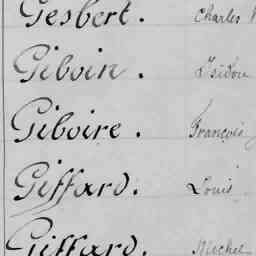 Gesbert. Charles
Giboin. Isidore
Giboire. François
Giffard. Louis
Giffard. Michel